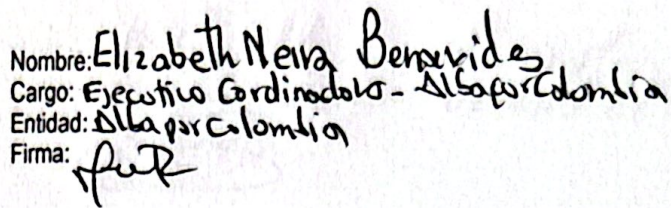 Nombre: Elizabeth Neira Benavides
Cargo: Ejecutivo Cordinadora - Alba por Colombia
Entidad: Alba por Colombia
Firma: